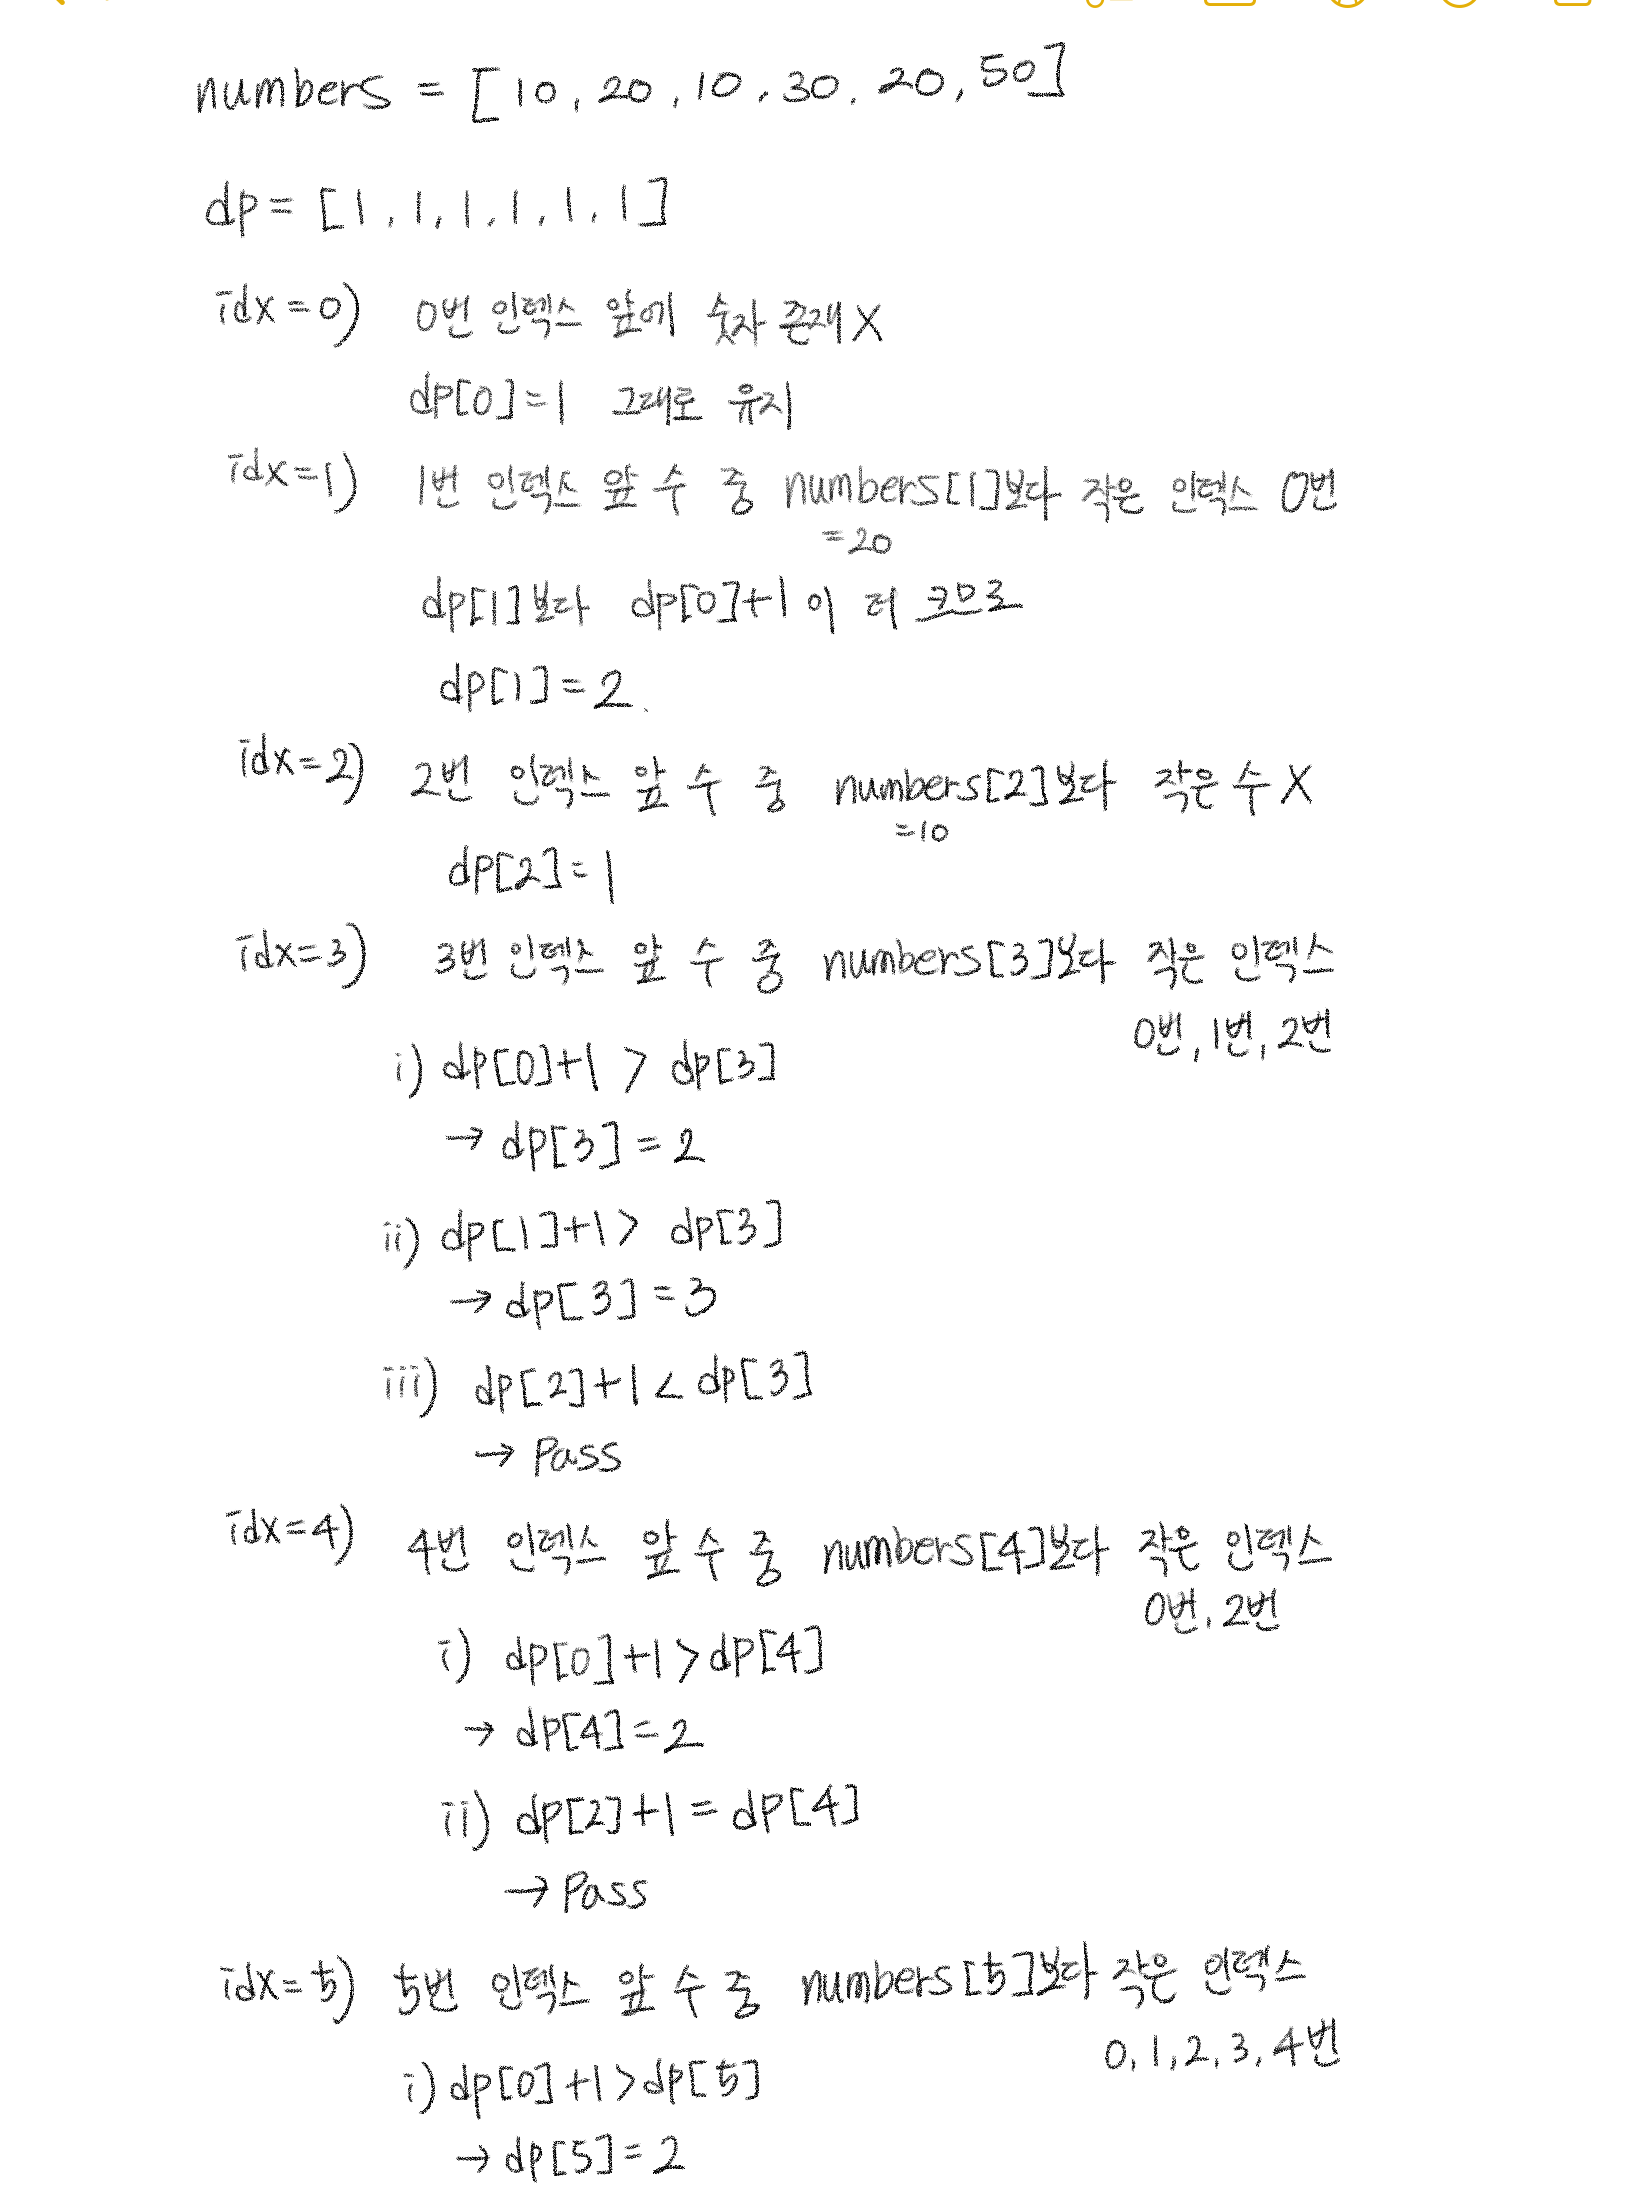 numbers = [10, 20, 10, 30, 20, 50]
dp = [1, 1, 1, 1, 1, 1]
idx=0) 0번 인덱스 앞에 숫자 존재 X
dp[0]=1 그대로 유지
idx=1) 1번 인덱스 앞 수 중 numbers[1]보다 작은 인덱스 0번
=20
dp[1]보다 dp[0]+1이 더 크므로
dp[1]=2.
idx=2) 2번 인덱스 앞 수 중 numbers[2]보다 작은 수 X
=10
dp[2]=1
idx=3) 3번 인덱스 앞 수 중 numbers[3]보다 작은 인덱스
0번, 1번, 2번
i) dp[0]+1 > dp[3]
→ dp[3]=2
ii) dp[1]+1 > dp[3]
→ dp[3]=3
iii) dp[2]+1 < dp[3]
→ Pass
idx=4) 4번 인덱스 앞 수 중 numbers[4]보다 작은 인덱스
0번, 2번
i) dp[0]+1 > dp[4]
→ dp[4]=2
ii) dp[2]+1 = dp[4]
→ Pass
idx=5) 5번 인덱스 앞 수 중 numbers[5]보다 작은 인덱스
0, 1, 2, 3, 4번
i) dp[0]+1 > dp[5]
→ dp[5]=2